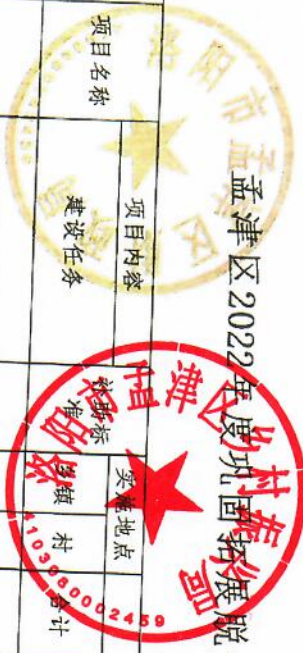 孟津区2022年度巩固拓展脱
项目名称
项目内容
建设任务
补助标准
实施地点
乡镇
村
合计
洛阳市孟津区乡村振兴局
4103080002459
洛阳市孟津区